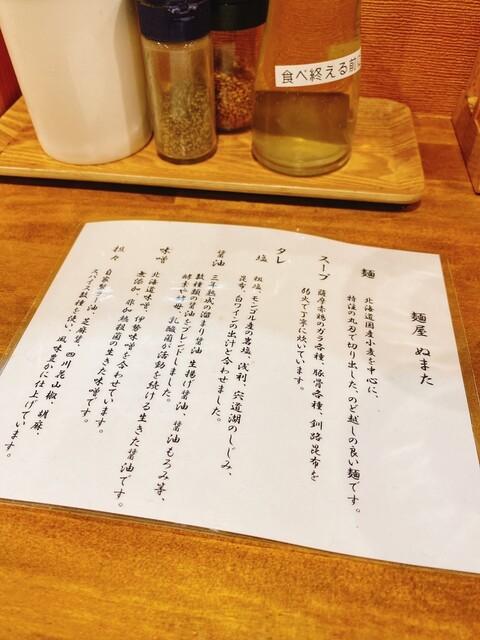 食べ終える前に
麺屋 ぬまた
麺
北海道国産小麦を中心に、
特注の丸刃で切り出した、のど越しの良い麺です。
スープ
薩摩赤鶏のガラ各種、豚骨各種、釧路昆布を
弱火で丁寧に炊いています。
タレ
塩
粗塩、モンゴル産の岩塩、浅利、宍道湖のしじみ、
昆布、白ワインの出汁と合わせました。
醤油
三年熟成の溜まり醤油、生揚げ醤油、醤油もろみ等、
数種類の醤油をブレンドしました。
酵素や酵母、乳酸菌が活動を続ける生きた醤油です。
味噌
北海道味噌、伊勢味噌を合わせています。
無添加、非加熱殺菌の生きた味噌です。
担々
自家製ラー油、芝麻醤、四川花山椒、胡麻、
スパイス数種を使い、風味豊かに仕上げています。